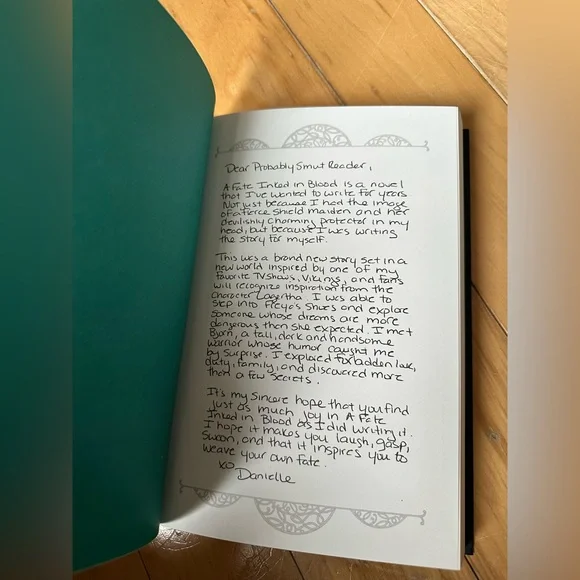 Dear Probably Smut Reader,
A Fate Inked in Blood is a novel
that I've wanted to write for years
Not just because I had the image
of a fierce shield maiden and her
devilishly charming protector in my
head, but because I was writing
the story for myself.
This was a brand new story set in a
new world inspired by one of my
favorite TV shows, Vikings, and fans
will recognize inspiration from the
character Lagertha. I was able to
step into Freya's shoes and explore
someone whose dreams are more
dangerous then she expected. I met
Bjorn, a tall, dark and handsome
warrior whose humor caught me
by surprise. I explored forbidden love,
duty, family, and discovered more
than a few secrets.
It's my sincere hope that you find
just as much joy in A Fate
Inked in Blood as I did writing it.
I hope it makes you laugh, gasp,
swoon, and that it inspires you to
weave your own fate.
xo
Danielle